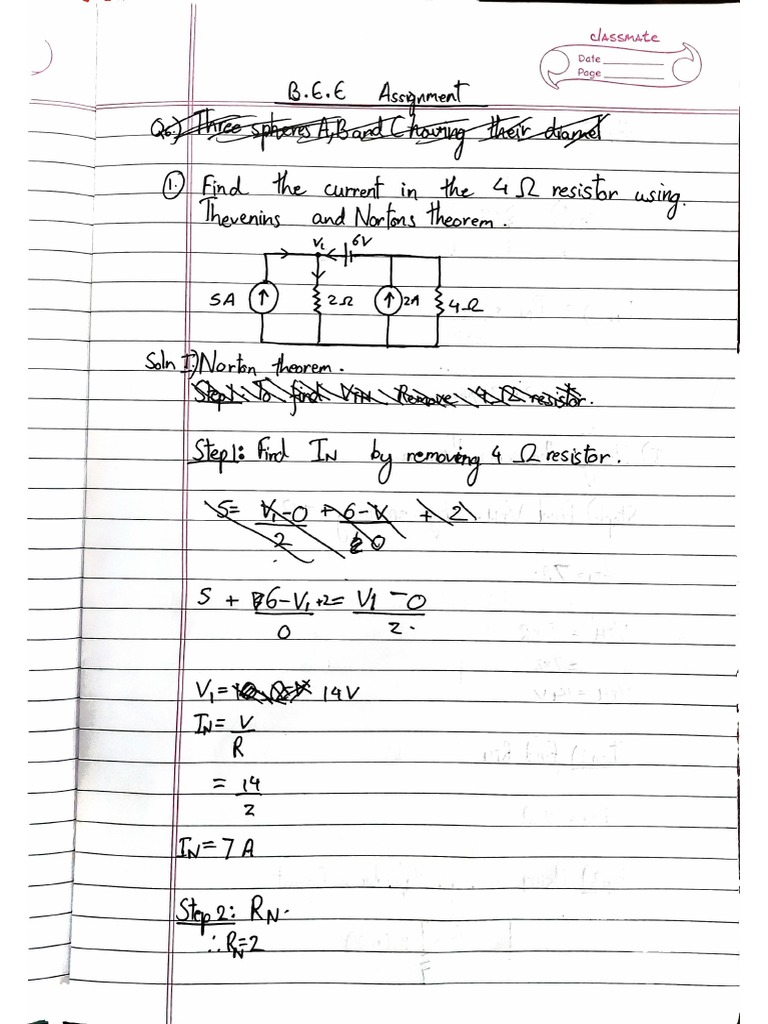 classmate
Date
Page
B.E.E Assignment
Q6.) Three spheres A, B and C having their diamet
1. Find the current in the 4 Ω resistor using.
Thevenins and Nortons theorem.
V₁ 6V
5A 2Ω 2A 4Ω
Soln I.) Norton theorem.
Step 1: To find VTN Remove 4 Ω resistor.
Step 1: Find IN by removing 4 Ω resistor.
5= V₁-0/2 + 6-V/0 + 2
5 + 6-V₁/0 +2= V1 -0/2.
V₁= 14V
IN= V/R
= 14/2
IN= 7 A
Step 2: RN.
∴ RN=2